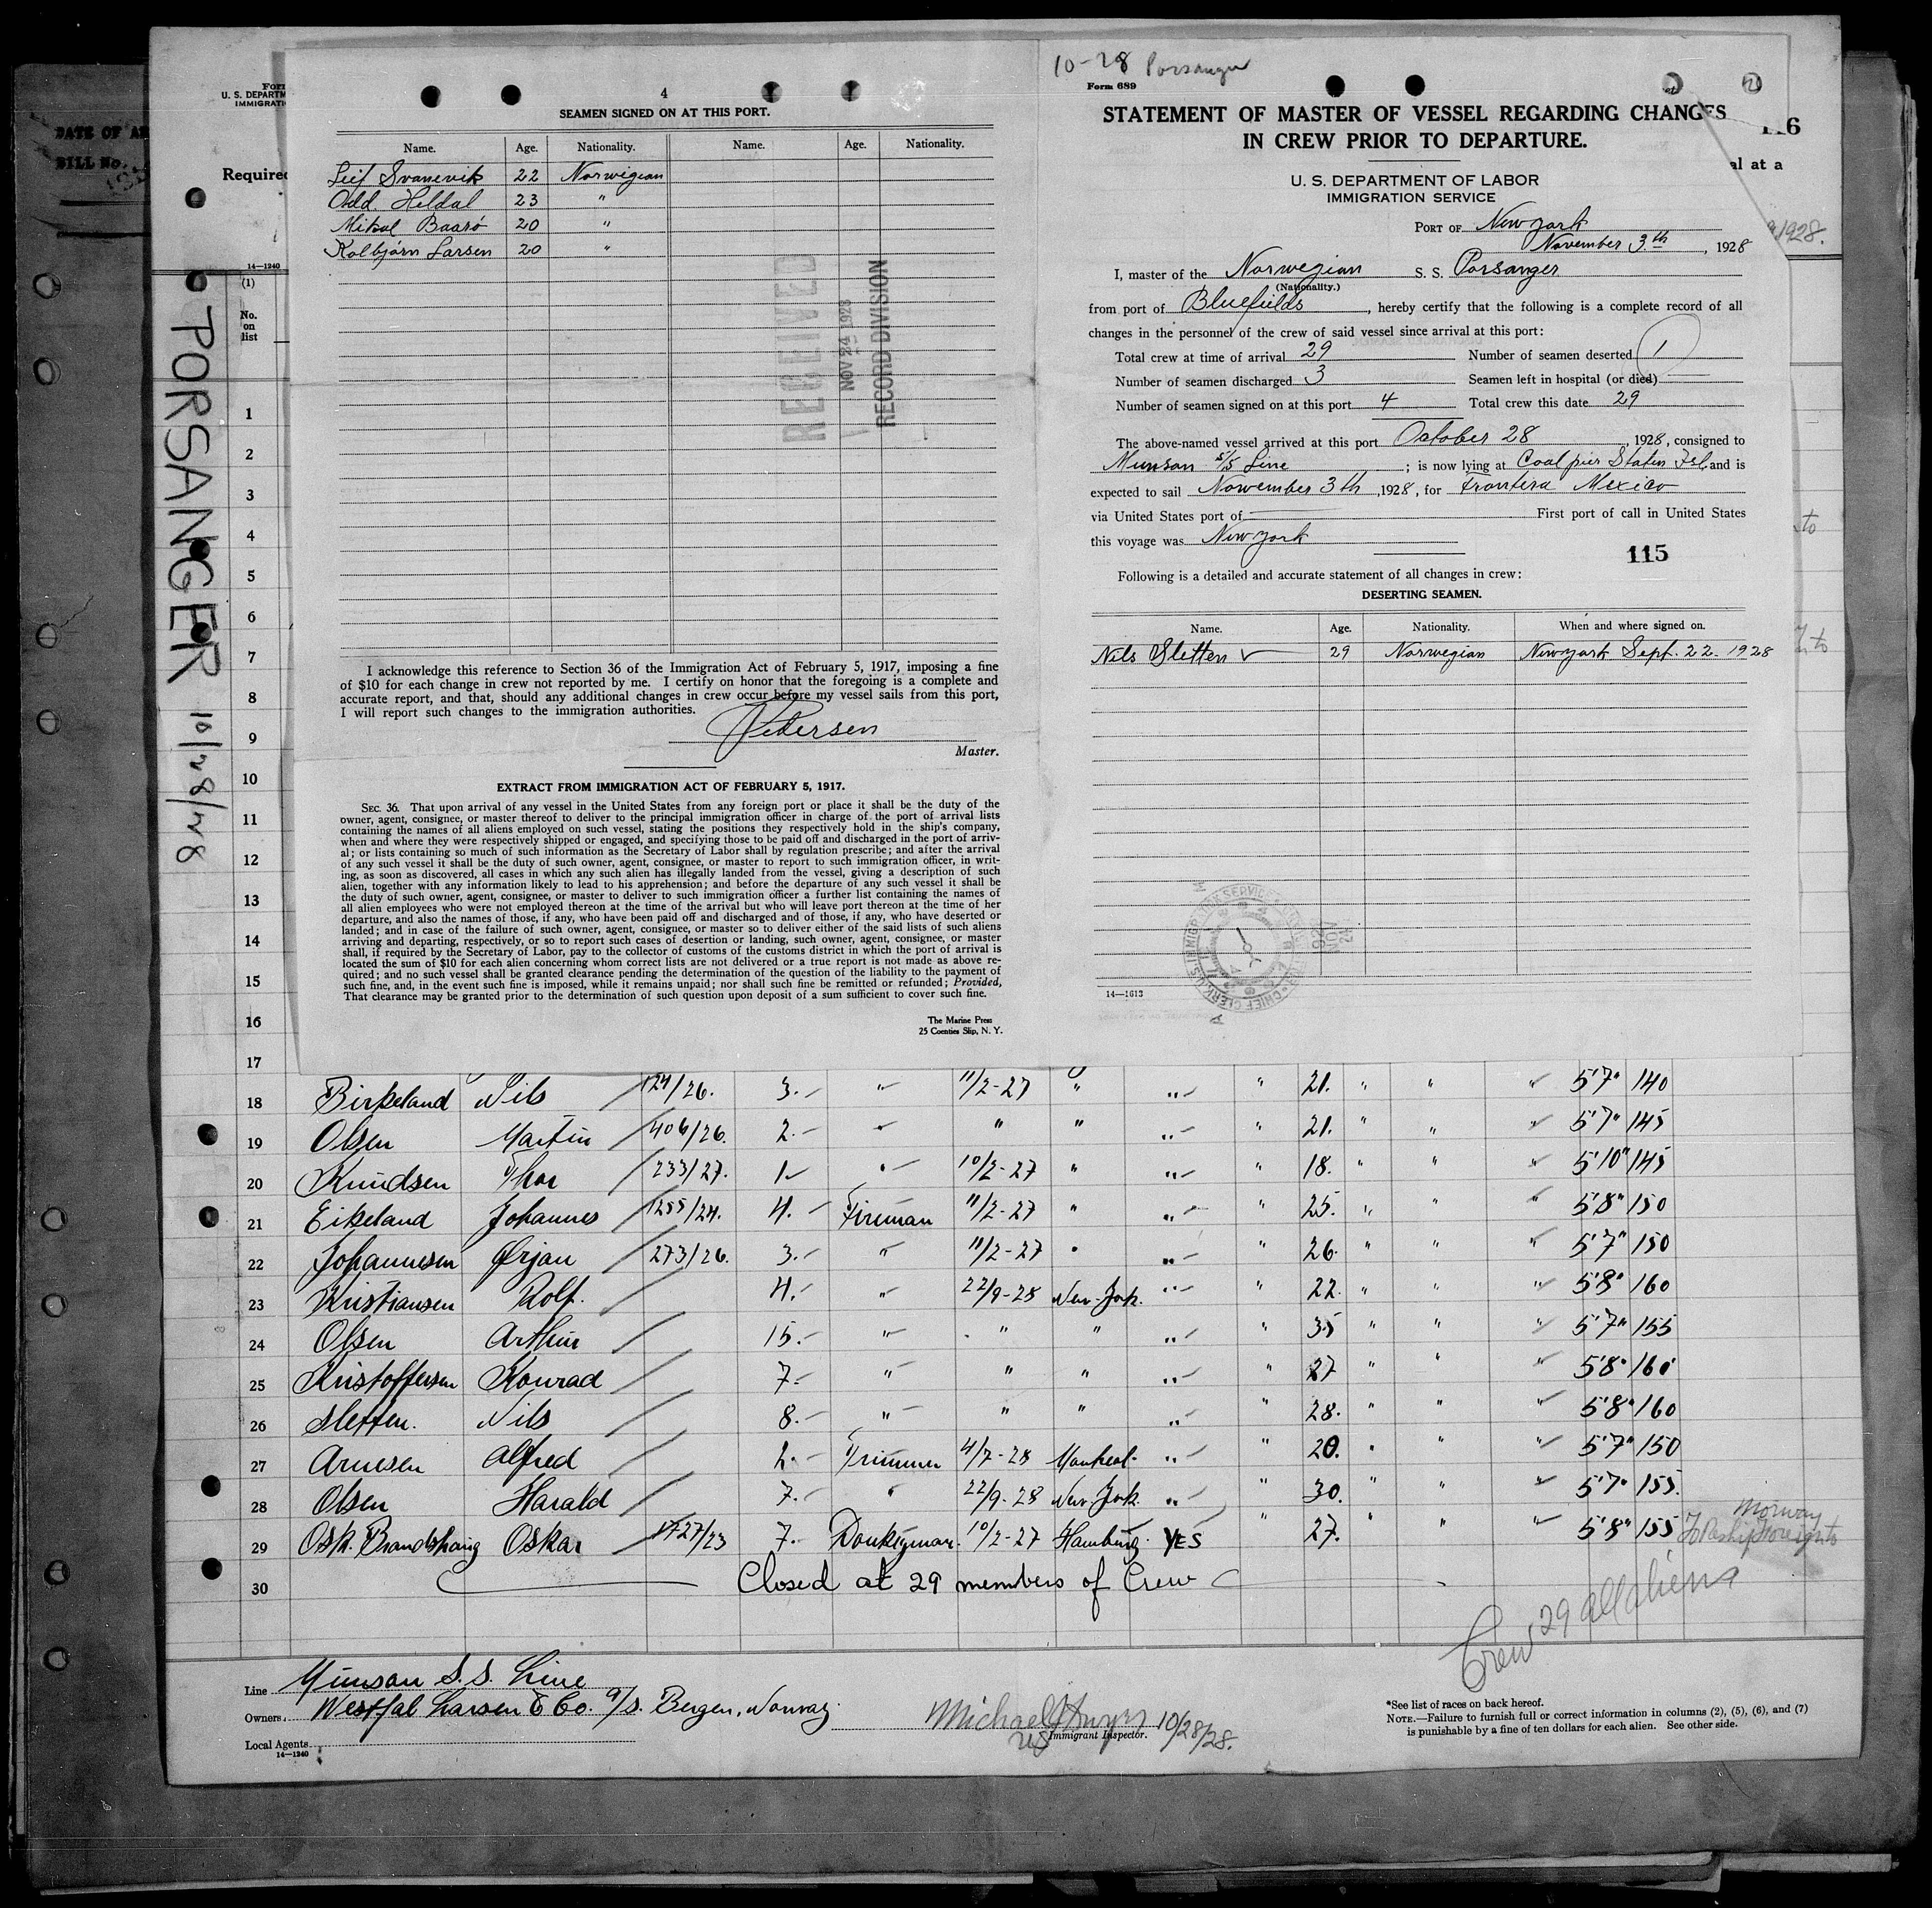 DATE OF
BILL No.
U. S. DEPARTM
IMMIGRATI
Required
14—1240
(1)
No.
on
list
PORSANGER 10/28/28
4
SEAMEN SIGNED ON AT THIS PORT.
Name. Age. Nationality. Name. Age. Nationality.
Leif Svanevik 22 Norwegian
Odd Heldal 23 "
Mikal Baarø 20 "
Kolbjørn Larsen 20 "
RECEIVED
NOV 24 1928
RECORD DIVISION
I acknowledge this reference to Section 36 of the Immigration Act of February 5, 1917, imposing a fine
of $10 for each change in crew not reported by me. I certify on honor that the foregoing is a complete and
accurate report, and that, should any additional changes in crew occur before my vessel sails from this port,
I will report such changes to the immigration authorities.
Pedersen
Master.
EXTRACT FROM IMMIGRATION ACT OF FEBRUARY 5, 1917.
SEC. 36. That upon arrival of any vessel in the United States from any foreign port or place it shall be the duty of the
owner, agent, consignee, or master thereof to deliver to the principal immigration officer in charge of the port of arrival lists
containing the names of all aliens employed on such vessel, stating the positions they respectively hold in the ship's company,
when and where they were respectively shipped or engaged, and specifying those to be paid off and discharged in the port of arriv-
al; or lists containing so much of such information as the Secretary of Labor shall by regulation prescribe; and after the arrival
of any such vessel it shall be the duty of such owner, agent, consignee, or master to report to such immigration officer, in writ-
ing, as soon as discovered, all cases in which any such alien has illegally landed from the vessel, giving a description of such
alien, together with any information likely to lead to his apprehension; and before the departure of any such vessel it shall be
the duty of such owner, agent, consignee, or master to deliver to such immigration officer a further list containing the names of
all alien employees who were not employed thereon at the time of the arrival but who will leave port thereon at the time of her
departure, and also the names of those, if any, who have been paid off and discharged and of those, if any, who have deserted or
landed; and in case of the failure of such owner, agent, consignee, or master so to deliver either of the said lists of such aliens
arriving and departing, respectively, or so to report such cases of desertion or landing, such owner, agent, consignee, or master
shall, if required by the Secretary of Labor, pay to the collector of customs of the customs district in which the port of arrival is
located the sum of $10 for each alien concerning whom correct lists are not delivered or a true report is not made as above re-
quired; and no such vessel shall be granted clearance pending the determination of the question of the liability to the payment of
such fine, and, in the event such fine is imposed, while it remains unpaid; nor shall such fine be remitted or refunded; Provided,
That clearance may be granted prior to the determination of such question upon deposit of a sum sufficient to cover such fine.
The Marine Press
25 Coenties Slip, N. Y.
10-28 Porsanger
Form 689
STATEMENT OF MASTER OF VESSEL REGARDING CHANGES
IN CREW PRIOR TO DEPARTURE.
U. S. DEPARTMENT OF LABOR
IMMIGRATION SERVICE
PORT OF New york
November 3th, 1928
I, master of the Norwegian S. S. Porsanger
(Nationality.)
from port of Bluefields, hereby certify that the following is a complete record of all
changes in the personnel of the crew of said vessel since arrival at this port:
Total crew at time of arrival 29 Number of seamen deserted 1
Number of seamen discharged 3 Seamen left in hospital (or died)
Number of seamen signed on at this port 4 Total crew this date 29
The above-named vessel arrived at this port October 28, 1928, consigned to
Munson S/S Line; is now lying at Coal pier Staten Isl. and is
expected to sail November 3th, 1928, for Frontera Mexico
via United States port of First port of call in United States
this voyage was New york
115
Following is a detailed and accurate statement of all changes in crew:
DESERTING SEAMEN.
Name. Age. Nationality. When and where signed on.
Nils Sletten 29 Norwegian Newyork Sept. 22. 1928
14—1613
116
al at a
1928.
to
to
1
2
3
4
5
6
7
8
9
10
11
12
13
14
15
16
17
18 Birkeland Nils 124/26. 3. " 11/2-27 " " " 21. " " " 5'7" 140
19 Olsen Martin 406/26. 2. " " " " " 21. " " " 5'7" 145
20 Knudsen Thor 233/27. 1 " 10/2-27 " " " 18. " " " 5'10" 145
21 Eikeland Johannes 1255/24. 4. Fireman 11/2-27 " " " 25. " " " 5'8" 150
22 Johannesen Ørjan 273/26. 3. " 11/2-27 " " " 26. " " " 5'7" 150
23 Kristiansen Rolf. 4. " 22/9-28 New-York. " " 22. " " " 5'8" 160
24 Olsen Arthur 15. " " " " " 35 " " " 5'7" 155
25 Kristoffersen Konrad 7. " " " " " 27 " " " 5'8" 160
26 Sletten. Nils 8. " " " " " 28. " " " 5'8" 160
27 Arnesen Alfred 2. Trimmer 4/7-28 Montreal. " " 20. " " " 5'7" 150
28 Olsen Harald 7. " 22/9-28 New-York. " " 30. " " " 5'7" 155.
29 Osk. Brandshaug Oskar 1727/23 7. Donkeyman. 10/2-27 Hamburg. YES " 27. " " " 5'8" 155
Norway
30 Closed at 29 members of Crew
Crew 29 all aliens
Line Munson S.S. Line
Owners Westfal Larsen & Co. A/S. Bergen, Norway.
Local Agents
14—1240
Michael J Dwyer 10/28/28.
Immigrant Inspector.
*See list of races on back hereof.
NOTE.—Failure to furnish full or correct information in columns (2), (5), (6), and (7)
is punishable by a fine of ten dollars for each alien. See other side.